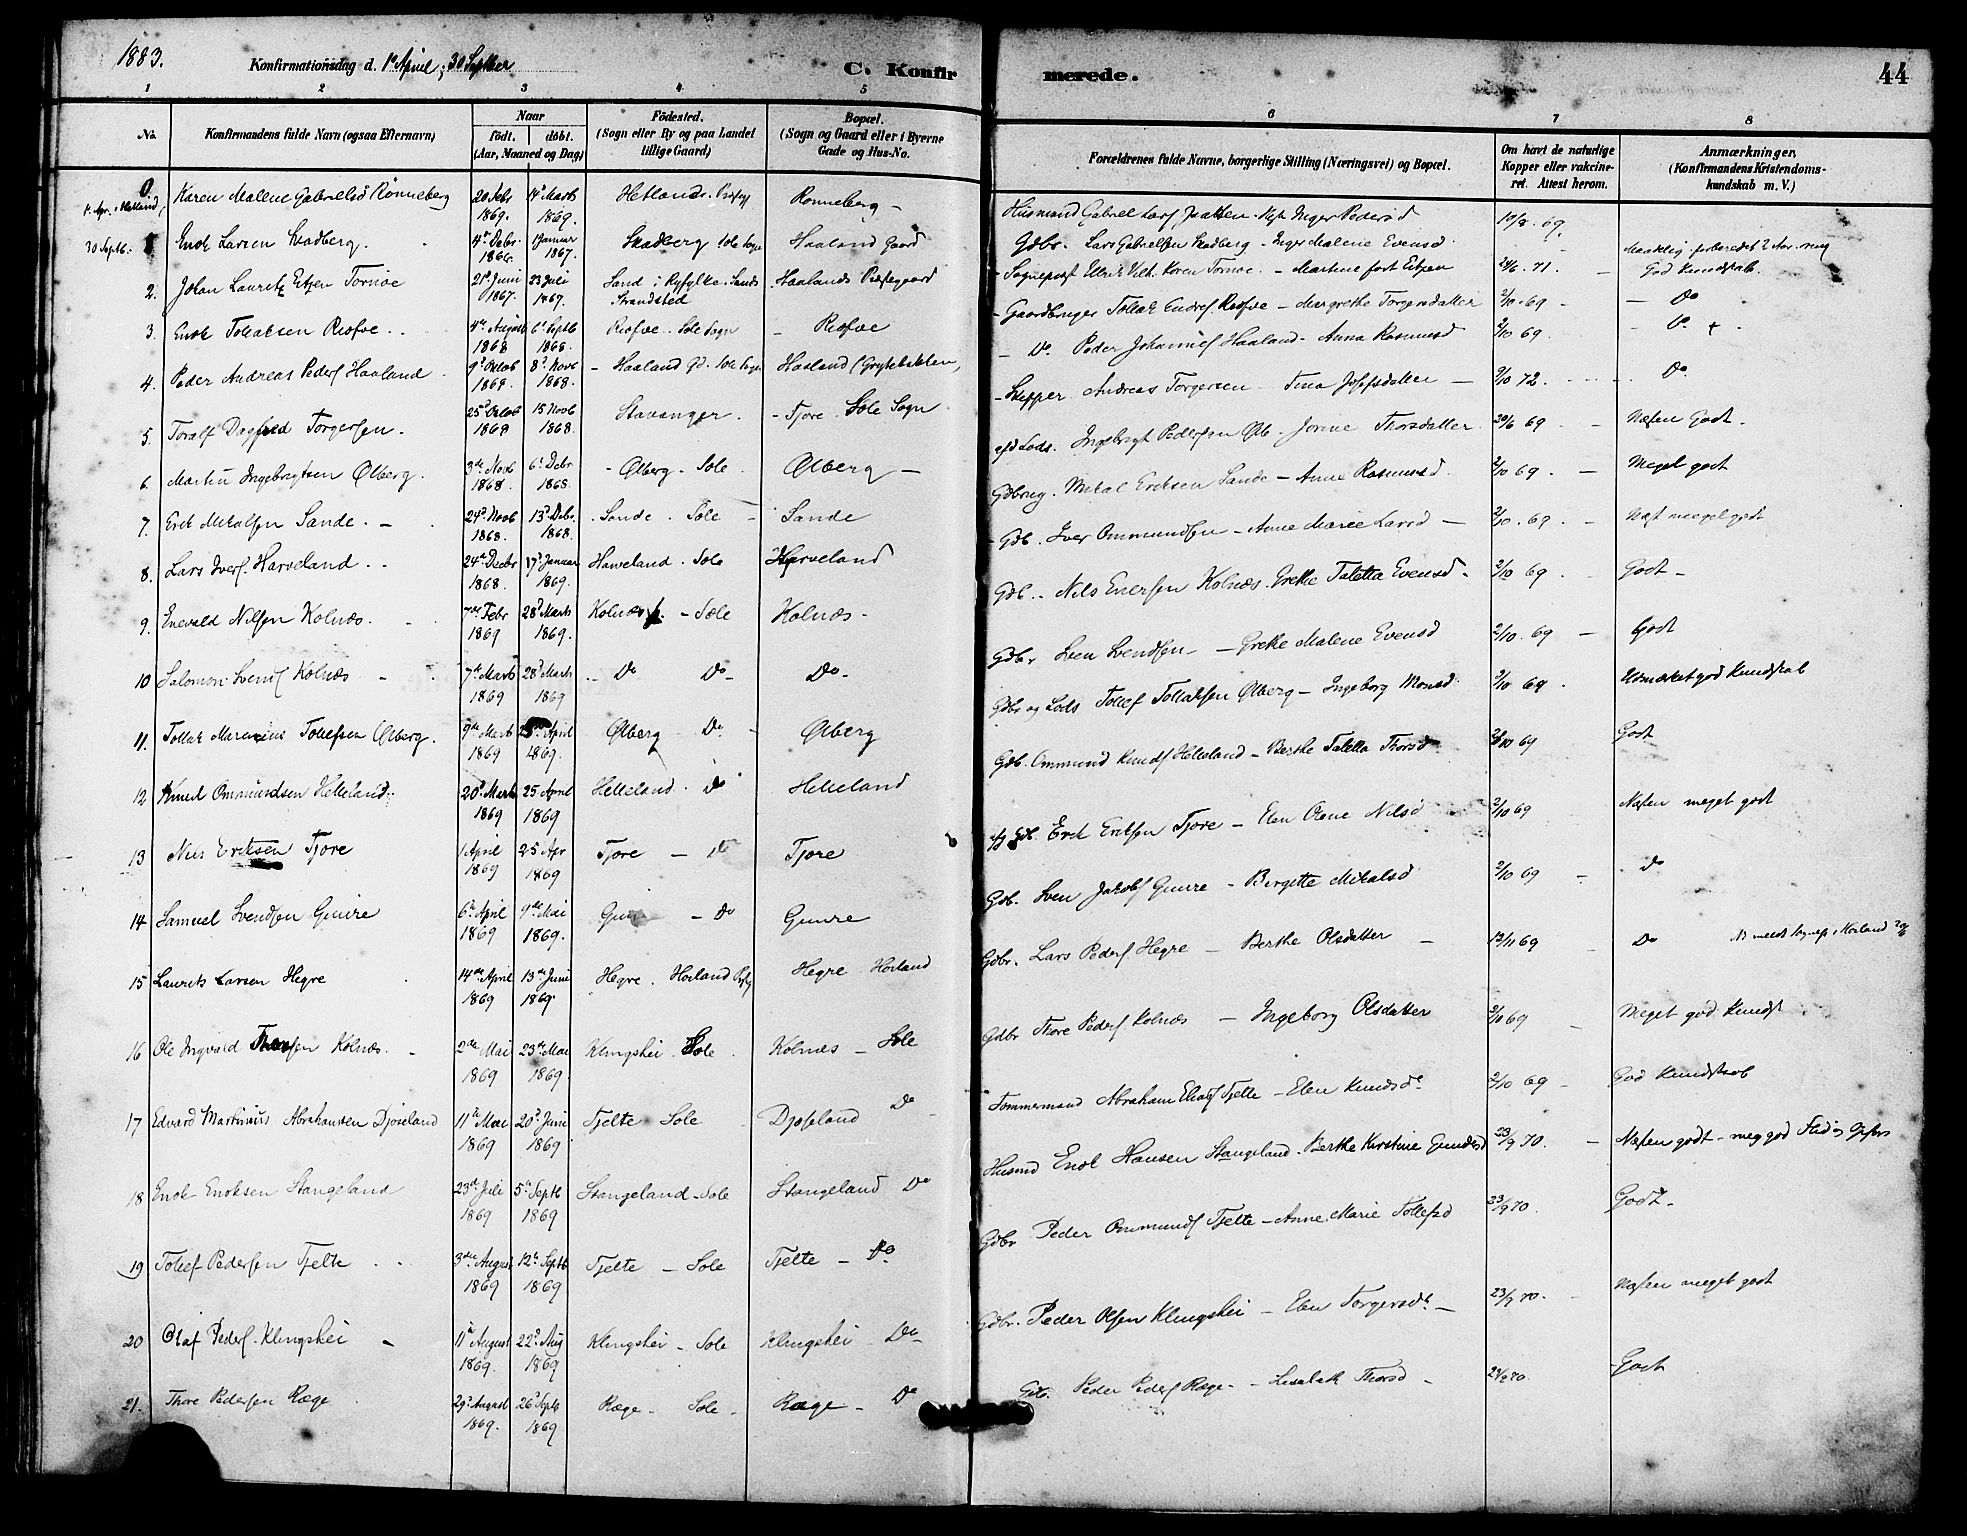 1883.
Konfirmationsdag d. 1ste April, 30 Septber
C. Konfir
merede.
44
1 2 3 4 5 6 7 8
No.
Konfirmandens fulde Navn (ogsaa Efternavn)
Naar
født. døbt.
(Aar, Maaned og Dag)
Fødested.
(Sogn eller By og paa Landet
tillige Gaard)
Bopæl.
(Sogn og Gaard eller i Byerne
Gade og Hus-No.
Forældrenes fulde Navne, borgerlige Stilling (Næringsvei) og Bopæl.
Om havt de naturlige
Kopper eller vakcine-
ret. Attest herom.
Anmærkninger.
(Konfirmandens Kristendoms-
kundskab m. V.)
0. Karen Malene Gabrielsd Rønneberg 20 Febr 1869. 14 Marts 1869. Hetlands Rønneberg - Husmand Gabriel Larsf - Inger Pedersd 69
30 Septb. 1 Enok Larsen Skadberg. 4de Debr. 1866. 1 Januar 1867. Skadberg Sole Sogn Haaland Gaard Gdbr. Lars Gabrielsen Skadberg - Inger Malene Evensd
2. Johan Lauretz Eitzen Tornøe 21de Juni 1867. 23 Juli 1867. Sand i Ryfylke. Sands Strandsted Haalands Præstegaard - Sognepræst Tornøe - Martine født Eitzen 71. God Kundskab.
3. Enok Tollaksen Risfoe 4de August 1868 6te Septb 1868. Sole Sogn - Gaardbruger Tollak - Margrethe Torgersdatter 2/10 69 - Do
4. Peder Andreas Pedersf Haaland 9de Oktob 1868. 8de Novb 1868. - Haaland Gd. Sole Sogn Haaland - Do. Peder Johannesf Haaland - Anna Rasmusd 2/10 69.
5. Toralf Dagfred Torgersen. 25de Oktob 1868 15 Novb 1868. Stavanger. - Tjore. Sole Sogn - Skipper Andreas Torgersen - Tina Josefsdatter 72. Do.
6. Martin Ingebrigtsen Ølberg. 3de Novb 1868. 6te Debr 1868. - Ølberg - Sole Ølberg - Lods. Ingebrigt Pedersen Ølb - Jorine Thorsdatter 69 Næsten Godt.
7. Erik Mikalsen Sande. - 24de Novb 1868. 13de Debr. 1868. Sande. Sole - Sande Gdbrug. Mikal Eriksen Sande - Anne Rasmusd. 2/10 69. - Meget godt
8. Lars Iversf. Harveland. 24de Decbr 1868. 17de Januar 1869. Harveland. Sole Harveland - Gdb. Iver Ommundsen - Anne Marie Larsd - 2/10. 69. Næst meget godt
9. Enevald Nilsen Kolnæs. 7de Febr 1869 28de Marts 1869. Kolnæs. - Sole Kolnæs - Gdb. Nils Kolnæs. Grethe Taletta Evensd. 2/10 69 Godt -
10 Salomon Svensf Kolnæs 7de Marts 1869 28de Marts 1869 Do Do - Do - Gdbr Sven Svendsen - Grethe Malene Evensd 2/10. 69 - Godt
11. Tollak Tollefsen Ølberg. 9de Marts 1869 April 1869. Ølberg Do - Ølberg Gdbr og Lods Tollef Tollaksen Ølberg - Ingeborg Monsd. 2/10 69. Udmærket god Kundskab
12 Knud Ommundsen Helleland. 20de Marts 1869 25 April 1869 Helleland. Do Helleland Gdb. Ommund Knudsf Helleland - Berthe Taletta Thorsd. 2/10 69 Godt
13 Nils Eriksen Tjore 1 April 1869 25 Apr 1869 Tjore - Do Tjore Gdb. Erik Eriksen Tjore - Elen Olene Nilsd 2/10 69 Næsten meget godt
14 Samuel Svendsen Gimre 6te April 1869 9de Mai 1869. - Do Gimre Gdb. Sven Jakobsf Gimre - Birgitte Mikalsd 2/10 69 - Do
15 Laurits Larsen Hegre 14de April 1869 13de Juni 1869. Hegre. Hegre Gdbr. Lars Pedersf Hegre - Berthe Olsdatter - 13/11 69 - Do
16 Ole Ingvald Kolnæs. 2den Mai 1869 23de Mai 1869. Klingshei. Sole Kolnæs - Sole Gdbr Thore Pedersf Kolnæs - Ingeborg Olsdatter 2/10 69 - Meget god Kundsk
17 Edvard Martinius Abrahamsen Djøseland 11te Mai 1869 20de Juni 1869 Tjelte Sole Do - Tømmermand Abraham Tjelte - Elen Knudsd. 2/10 69 - God Kundskab
18 Enok Enoksen Stangeland 23de Juli 1869 5te Septb 1869 Stangeland - Sole Stangeland Do Husmd Enok Hansen Stangeland. Berthe Kirstine 23/9 70. - Næsten godt - meg god Flid
19 Tollef Pedersen Tjelte 3die August 1869 12te Septb 1869 Tjelte - Sole Tjelte - Do. Gdbr Peder Ommundsf Tjelte - Anne Marie Tollefsd 23/9 70. Godt -
20 Olaf Pedersf. Klingshei - 11te August 1869. 22de Aug 1869 Klingshei - Sole Klingshei - Do - Gdbr. Peder Olsen Klingshei - Elen Torgersdt. - 23/9 70. - Næsten meget godt
21. Thore Pedersen Ræge 29de August 1869. 26de Septb 1869 Ræge - Sole - Ræge - Do Gdb. Peder Pedersf Ræge - Lisabeth Thorsd - 70. Godt